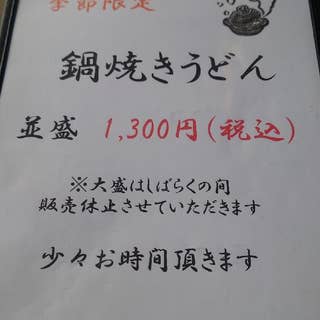 季節限定
鍋焼きうどん
並盛 1,300円(税込)
※大盛はしばらくの間
販売休止させていただきます
少々お時間頂きます